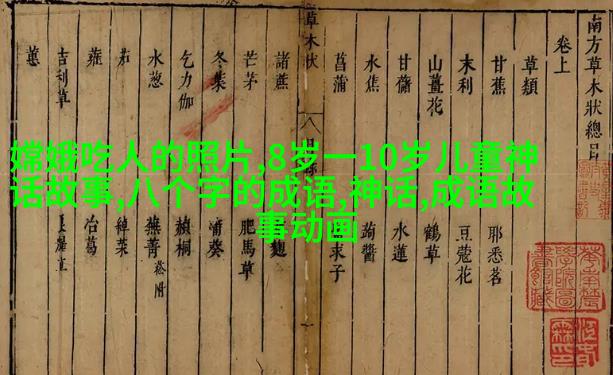 嫦娥吃人的照片,8岁一10岁儿童神
话故事,八个字的成语,神话,成语故
事动画
南方草木狀總目
卷上
草類
甘蕉
耶悉茗
末利
豆蔻花
山薑花
鶴草
甘藷
水蓮
水蕉
蒟醬
菖蒲
草木狀
八
諸蔗
芒茅
肥馬草
冬葉
蒲葵
乞力伽
赬桐
水葱
蕪菁 菘附
茄
綽菜
蕹
冶葛
吉利草
蕙